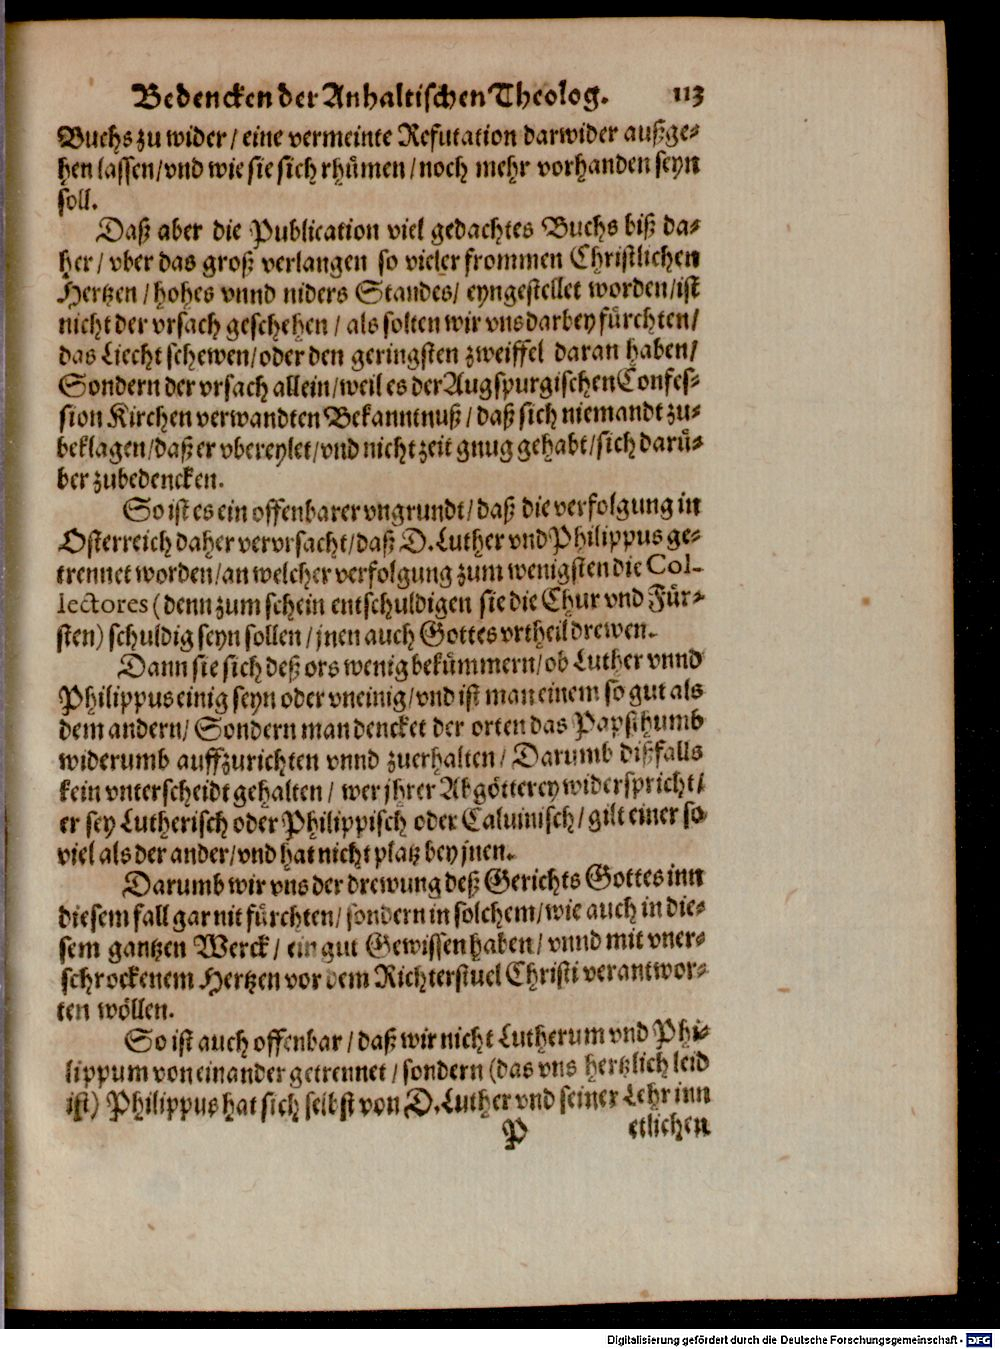 Bedencken der Anhaltischen Theolog. 113
Buchs zu wider / eine vermeinte Refutation darwider außge-
hen lassen/vnd wie sie sich rhümen / noch mehr vorhanden seyn
soll.
Daß aber die Publication viel gedachtes Buchs biß da-
her / vber das groß verlangen so vieler frommen Christlichen
Hertzen / hohes vnnd niders Standes/ eyngestellet worden/ist
nicht der vrsach geschehen / als solten wir vns darbey fürchten/
das Liecht schewen/oder den geringsten zweiffel daran haben/
Sondern der vrsach allein/weil es der Augspurgischen Confes-
sion Kirchen verwandten Bekanntnuß / daß sich niemandt zu-
beklagen/daß er vbereylet/vnd nicht zeit gnug gehabt/sich darü-
ber zubedencken.
So ist es ein offenbarer vngrundt/ daß die verfolgung in
Osterreich daher vervrsacht/daß D. Luther vnd Philippus ge-
trennet worden/an welcher verfolgung zum wenigsten die Col-
lectores (denn zum schein entschuldigen sie die Chur vnd Für-
sten) schuldig seyn sollen / jnen auch Gottes vrtheil drewen.
Dann sie sich deß ors wenig bekümmern/ob Luther vnnd
Philippus einig seyn oder vneinig/vnd ist man einem so gut als
dem andern/ Sondern man dencket der orten das Papsthumb
widerumb auffzurichten vnnd zuerhalten / Darumb dißfalls
kein vnterscheidt gehalten / wer jhrer Abgötterey widerspricht/
er sey Lutherisch oder Philippisch oder Caluinisch/ gilt einer so
viel als der ander/vnd hat nicht platz bey jnen.
Darumb wir vns der drewung deß Gerichts Gottes inn
diesem fall gar nit fürchten/ sondern in solchem/wie auch in die-
sem gantzen Werck / ein gut Gewissen haben/ vnnd mit vner-
schrockenem Hertzen vor dem Richterstuel Christi verantwor-
ten wöllen.
So ist auch offenbar / daß wir nicht Lutherum vnd Phi-
lippum von einander getrennet / sondern (das vns hertzlich leid
ist) Philippus hat sich selbst von D. Luther vnd seiner Lehr inn
P etlichen
Digitalisierung gefördert durch die Deutsche Forschungsgemeinschaft - DFG